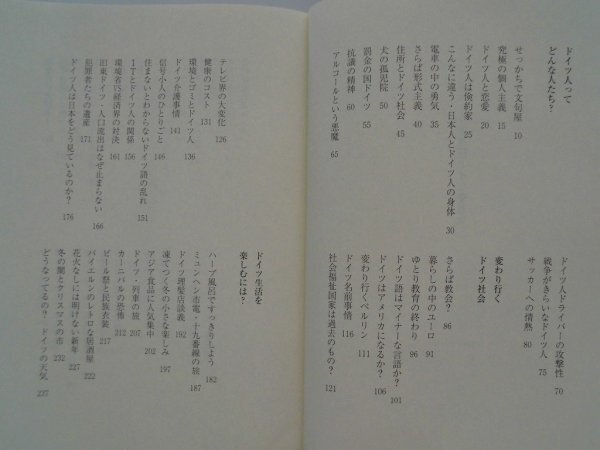 ドイツ人って
どんな人たち?
せっかちで文句屋 10
究極の個人主義 15
ドイツ人と恋愛 20
ドイツ人は倹約家 25
こんなに違う・日本人とドイツ人の身体 30
電車の中の勇気 35
さらば形式主義 40
住所とドイツ社会 45
犬の孤児院 50
罰金の国ドイツ 55
抗議の精神 60
アルコールという悪魔 65
ドイツ人ドライバーの攻撃性 70
戦争がきらいなドイツ人 75
サッカーへの情熱 80
変わり行く
ドイツ社会
さらば教会? 86
暮らしの中のユーロ 91
ゆとり教育の終わり 96
ドイツ語はマイナーな言語か? 101
ドイツはアメリカになるか? 106
変わり行くベルリン 111
ドイツ名前事情 116
社会福祉国家は過去のもの? 121
テレビ界の大変化 126
健康のコスト 131
環境とゴミとドイツ人 136
ドイツ介護事情 141
信号小人のひとりごと 146
住まないとわからないドイツ語の乱れ 151
ITとドイツ人の関係 156
環境省VS経済界の対決 161
旧東ドイツ・人口流出はなぜ止まらない 166
犯罪者たちの遺産 171
ドイツ人は日本をどう見ているのか? 176
ドイツ生活を
楽しむには?
ハーブ風呂ですっきりしよう 182
ミュンヘン市電・十九番線の旅 187
ドイツ理髪店談義 192
凍てつく冬の小さな楽しみ 197
アジア食品に人気集中 202
ドイツ・列車の旅 207
カーニバルの恐怖 212
ビール祭と民族衣装 217
バイエルンのレトロな居酒屋 222
花火なしには明けない新年 227
冬の闇とクリスマスの市 232
どうなってるの? ドイツの天気 237